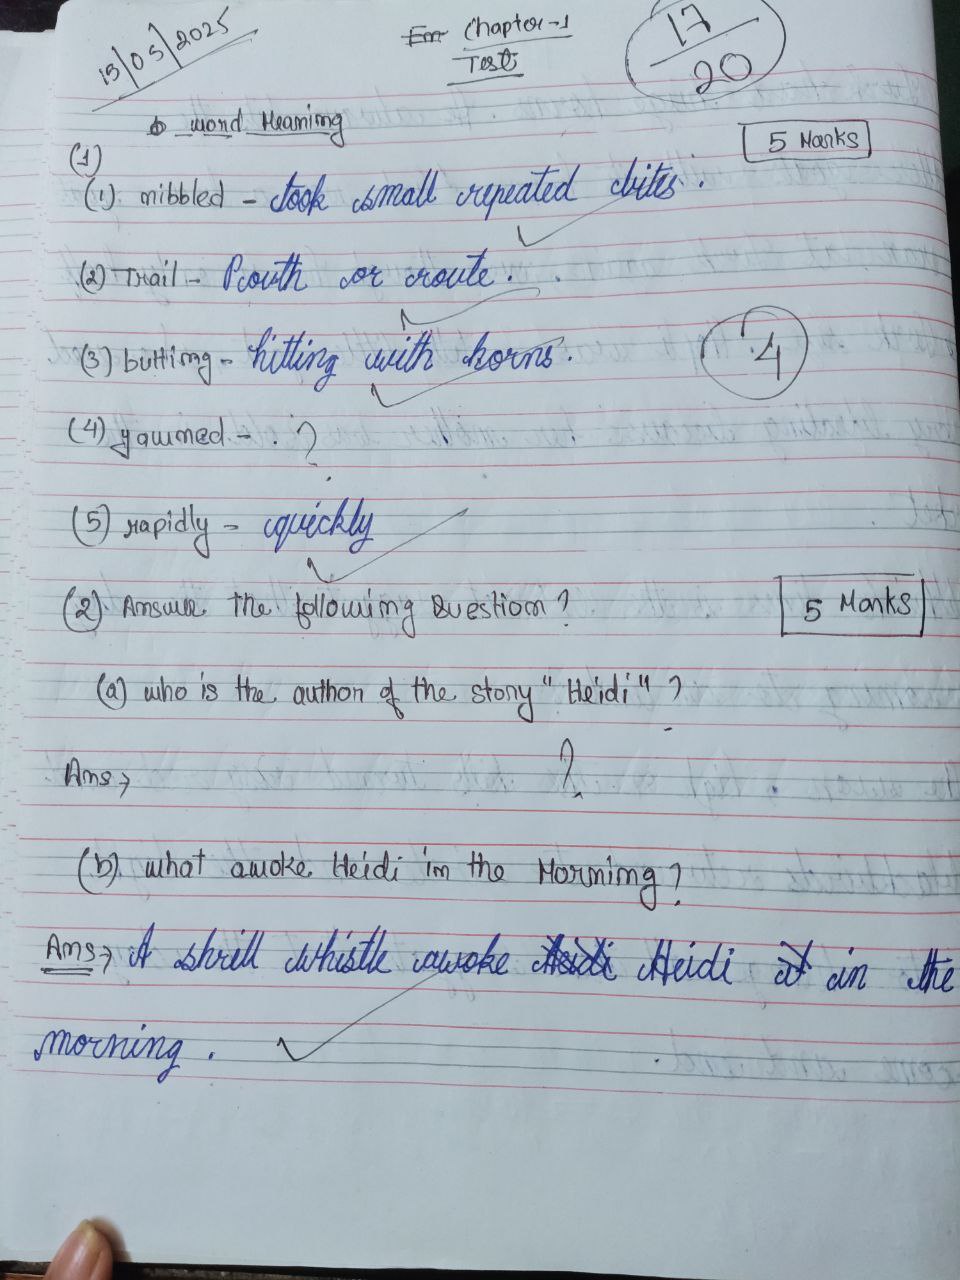 15/05/2025
Em Chapter-1
Test
17/20
Word Meaning
5 Marks
(1)
(1) nibbled - took small repeated bites.
(2) Trail - Pouth or route.
(3) butting - hitting with horns.
4
(4) yawned - . ?
(5) rapidly - quickly
(2) Answer the following Question?
5 Marks
(a) who is the author of the story "Heidi"?
Ans→ ?
(b) what awoke Heidi in the Morning?
Ans→ A shrill whistle awoke Heidi Heidi at in the
morning.